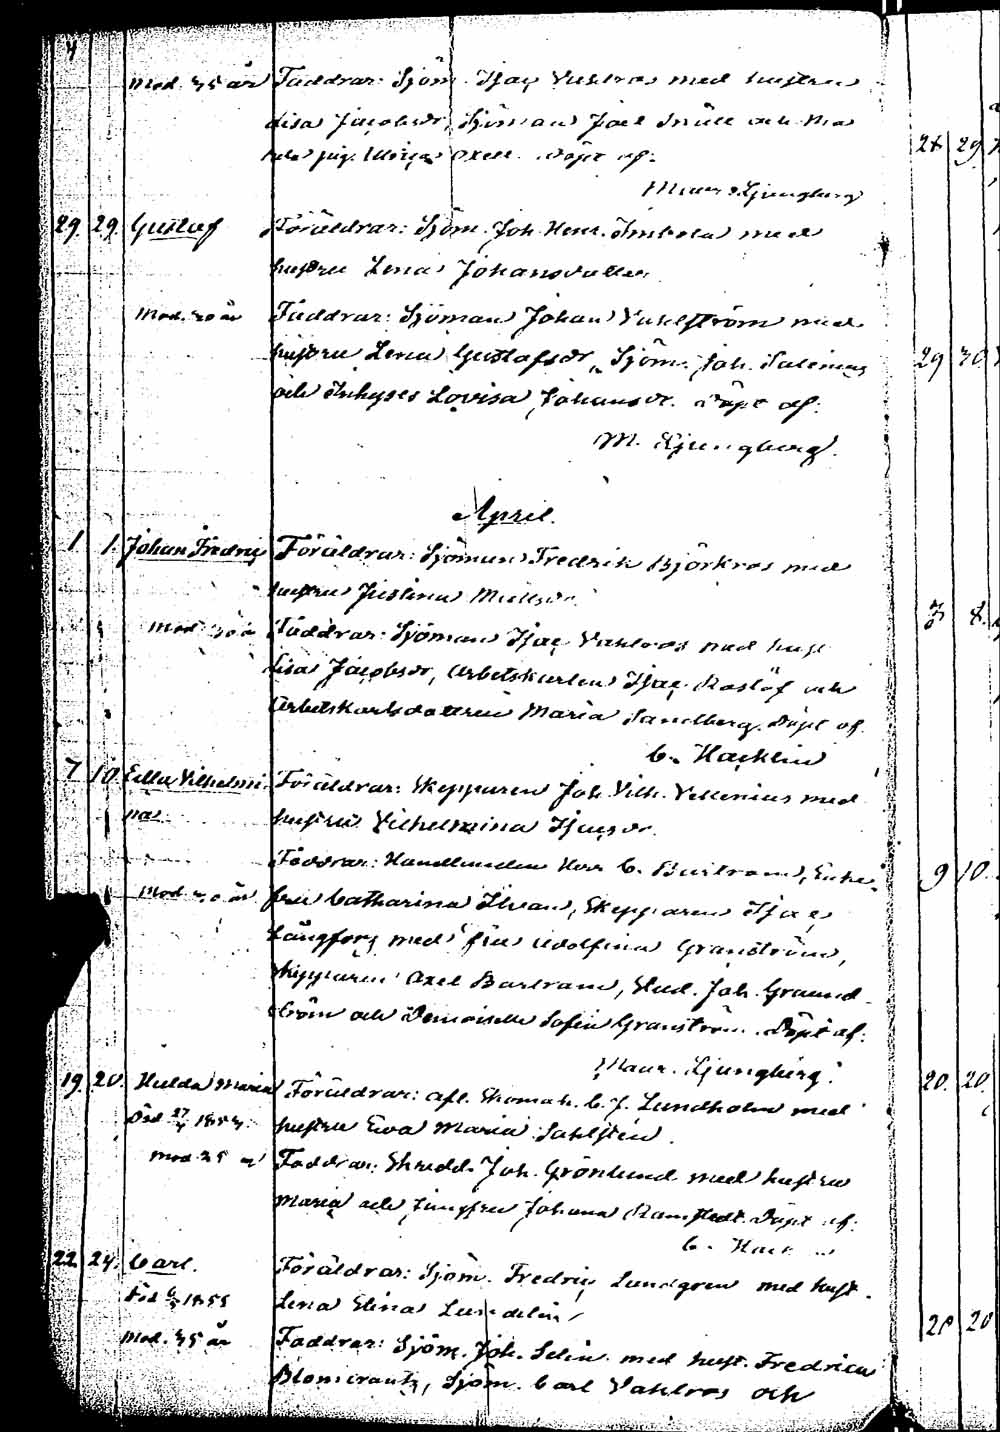 4
Mod. 35 år Faddrar: Sjöm. Isaç Vahlros med hustru
Lisa Jacobsdr, Sjöman Joel Snäll och
pig. Ulriça Axell. Döpt af:
Maur. Ljungberg
29. 29. Gustaf Föräldrar: Sjöm. Joh. Henr. Imbola med
hustru Lena Johansdotter
Mod. 20 år Faddrar: Sjöman Johan Vahlström med
hustru Lena Gustafsdr, Sjöm. Joh. Salenius
och Inhyses Lovisa Johansdr. Döpt af:
M. Ljungberg.
April.
1 1. Johan Fredriç Föräldrar: Sjöman Fredrik Björkros med
hustru Justina Mattsdr.
Mod. 30 år Faddrar: Sjöman Isaç Vahlros med hust
Lisa Jacobsdr, Arbetskarlen Isaç Roslöf och
Arbetskarlsdottren Maria Sandberg. Döpt af
C. Hacklin
7 10. Edla Vilhelmi- Föräldrar: Skepparen Joh. Vilh. Vellenius med
na hustru Vilhelmina Isaçsdr.
Faddrar: Handlanden Herr C. Bastram, Enke-
Mod. 20 år fru Catharina Ilvan, Skepparen Isaç
Långfors med fru Adolfina Granström,
Skepparen Axel Bartram, Stud. Joh. Grand-
ström och Demoiselle Sofia Granström. Döpt af:
Maur. Ljungberg.
19. 20. Hulda Maria Föräldrar: afl. Skomak. C. J. Lundholm med
Död 27/4 1857. hustru Eva Maria Sahlstén.
Mod 25 år Faddrar: Skredd. Joh. Grönlund med hustru
Maria och Jungfru Johana Ramstedt. Döpt af:
C. Hack
22 24. Carl. Föräldrar: Sjöm. Fredriç Lundgren med hust.
Död 1855 Lena Elina Lundelin
Mod. 35 år Faddrar: Sjöm. Joh. Selin med hust. Fredrica
Blomcrantz, Sjöm. Carl Vahlros och
28 29
29 30
7 8.
9 10.
20. 20.
20